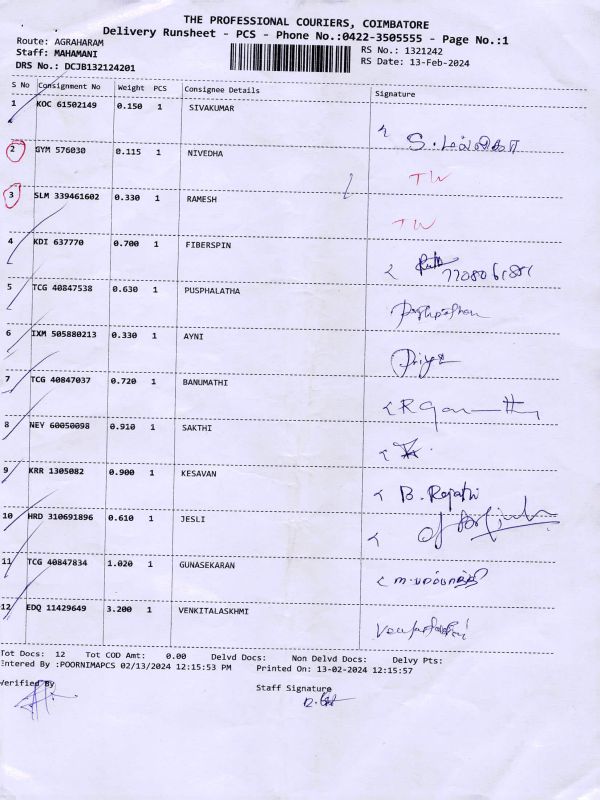 THE PROFESSIONAL COURIERS, COIMBATORE
Delivery Runsheet - PCS - Phone No.:0422-3505555 - Page No.:1
Route: AGRAHARAM RS No.: 1321242
Staff: MAHAMANI RS Date: 13-Feb-2024
DRS No.: DCJB132124201
S No Consignment No Weight PCS Consignee Details Signature
1 KOC 61502149 0.150 1 SIVAKUMAR
2 GYM 576030 0.115 1 NIVEDHA TW
3 SLM 339461602 0.330 1 RAMESH TW
4 KDI 637770 0.700 1 FIBERSPIN
5 TCG 40847538 0.630 1 PUSPHALATHA
6 IXM 505880213 0.330 1 AYNI Priya
7 TCG 40847037 0.720 1 BANUMATHI
8 NEY 60050098 0.910 1 SAKTHI
9 KRR 1305082 0.900 1 KESAVAN B. Rajathi
10 HRD 310691896 0.610 1 JESLI
11 TCG 40847834 1.020 1 GUNASEKARAN
12 EDQ 11429649 3.200 1 VENKITALASKHMI
Tot Docs: 12 Tot COD Amt: 0.00 Delvd Docs: Non Delvd Docs: Delvy Pts:
Entered By :POORNIMAPCS 02/13/2024 12:15:53 PM Printed On: 13-02-2024 12:15:57
Verified By Staff Signature